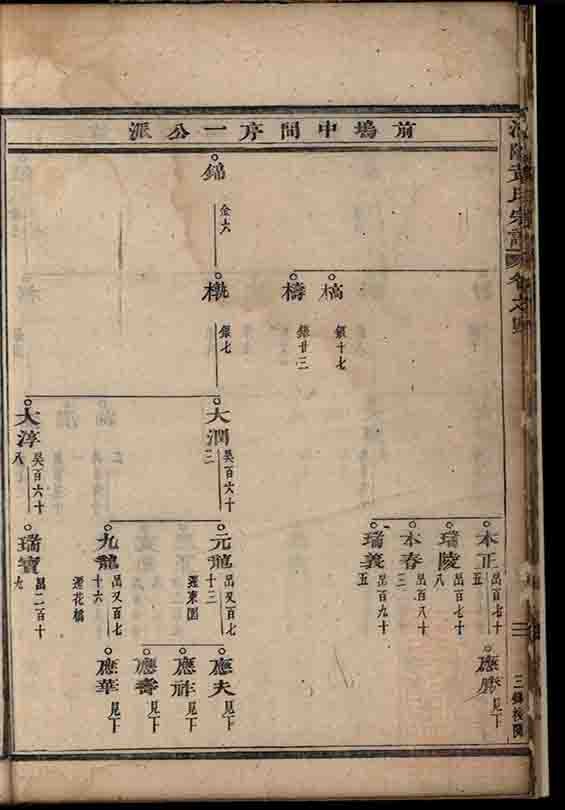 前塢中間序一公派
錦
金六
槁
銀十七
檮
銀廿三
杋
銀七
大潤
吳百六十三
大淳
吳百六十八
本正
呂百七十五
瑞陵
呂百七十八
本春
呂百八十三
瑞義
呂百九十五
元龍
呂又百七十三
遷東園
九龍
呂又百七十六
遷花橋
瑞寶
呂二百十九
應勝
見下
應夫
見下
應祚
見下
應壽
見下
應華
見下
黃氏宗譜
卷之四